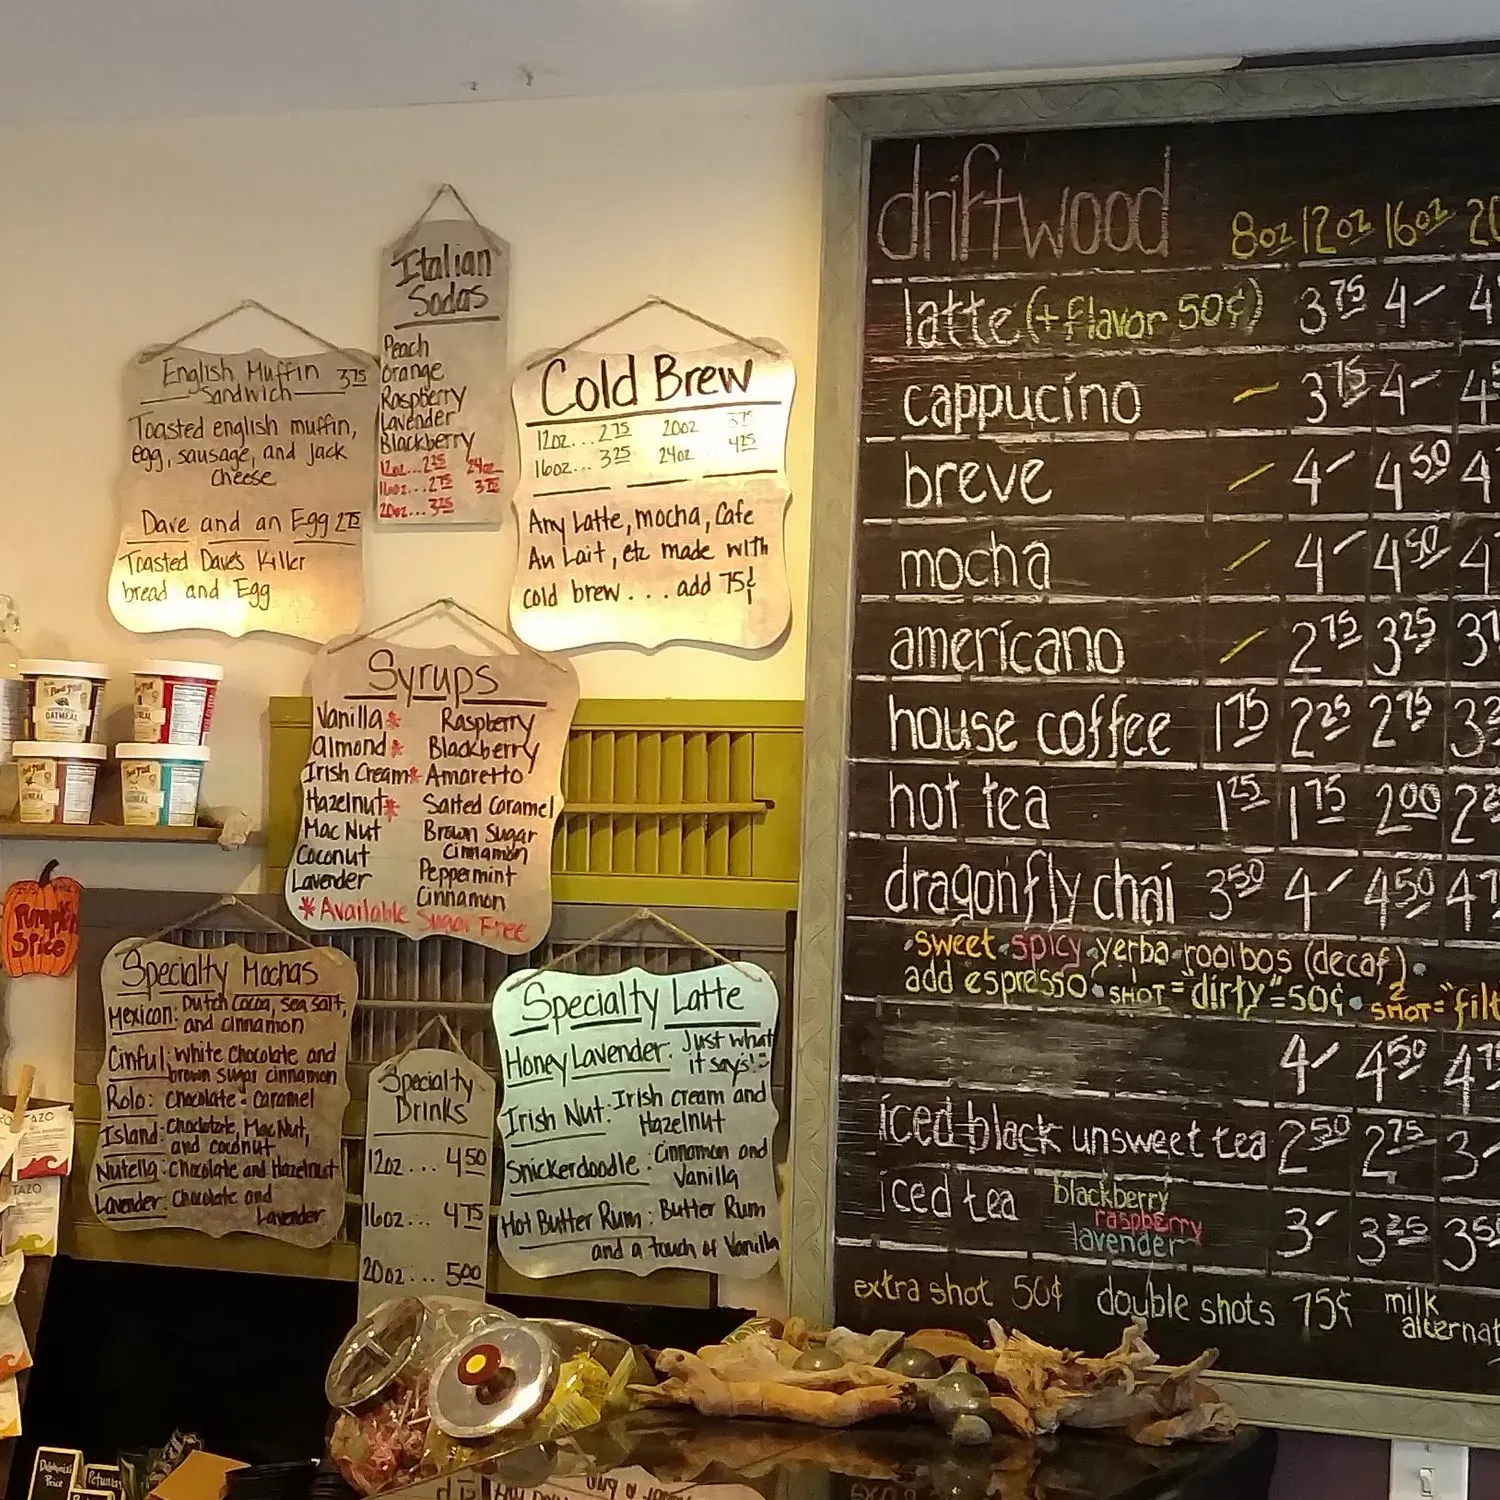 English Muffin 3.75
Sandwich
Toasted english muffin,
egg, sausage, and Jack
Cheese
Dave and an Egg 2.75
Toasted Dave's Killer
bread and Egg
Italian
Sodas
Peach
Orange
Raspberry
Lavender
Blackberry
12oz...2.25 24oz
16oz...2.75 3.75
20oz...3.25
Cold Brew
12oz...2.75 20oz 3.75
16oz...3.25 24oz ... 4.25
Any Latte, mocha, Cafe
Au Lait, etc made with
cold brew...add 75¢
Syrups
Vanilla* Raspberry
Almond* Blackberry
Irish Cream* Amaretto
Hazelnut* Salted Caramel
Mac Nut Brown Sugar
Cinnamon
Coconut Peppermint
Lavender Cinnamon
*Available Sugar Free
OATMEAL
Pumpkin
Spice
Specialty Mochas
Mexican: Dutch Cocoa, sea salt,
and cinnamon
Cinful: White chocolate and
brown sugar cinnamon
Rolo: Chocolate & Caramel
Island: Chocolate, Mac Nut,
and coconut
Nutella: Chocolate and Hazelnut
Lavender: Chocolate and
Lavender
Specialty
Drinks
12oz... 4.50
16oz... 4.75
20oz... 5.00
Specialty Latte
Honey Lavender: Just what
it says! :)
Irish Nut: Irish cream and
Hazelnut
Snickerdoodle: Cinnamon and
Vanilla
Hot Butter Rum: Butter Rum
and a touch of Vanilla
TAZO
TAZO
driftwood 8oz 12oz 16oz 20
latte (+flavor 50¢) 3.75 4- 4
cappucino - 3.75 4- 4.5
breve - 4- 4.50 4
mocha - 4- 4.50 4
americano - 2.75 3.25 3.7
house coffee 1.75 2.25 2.75 3.2
hot tea 1.25 1.75 2.00 2.2
dragonfly chai 3.50 4- 4.50 4.7
•sweet•spicy•yerba•rooibos (decaf)•
add espresso•SHOT="dirty"=50¢•2 SHOT="filt
4- 4.50 4.75
iced black unsweet tea 2.50 2.75 3-
iced tea blackberry 3- 3.25 3.50
raspberry
lavender
extra shot 50¢ double shots 75¢ milk
alternat